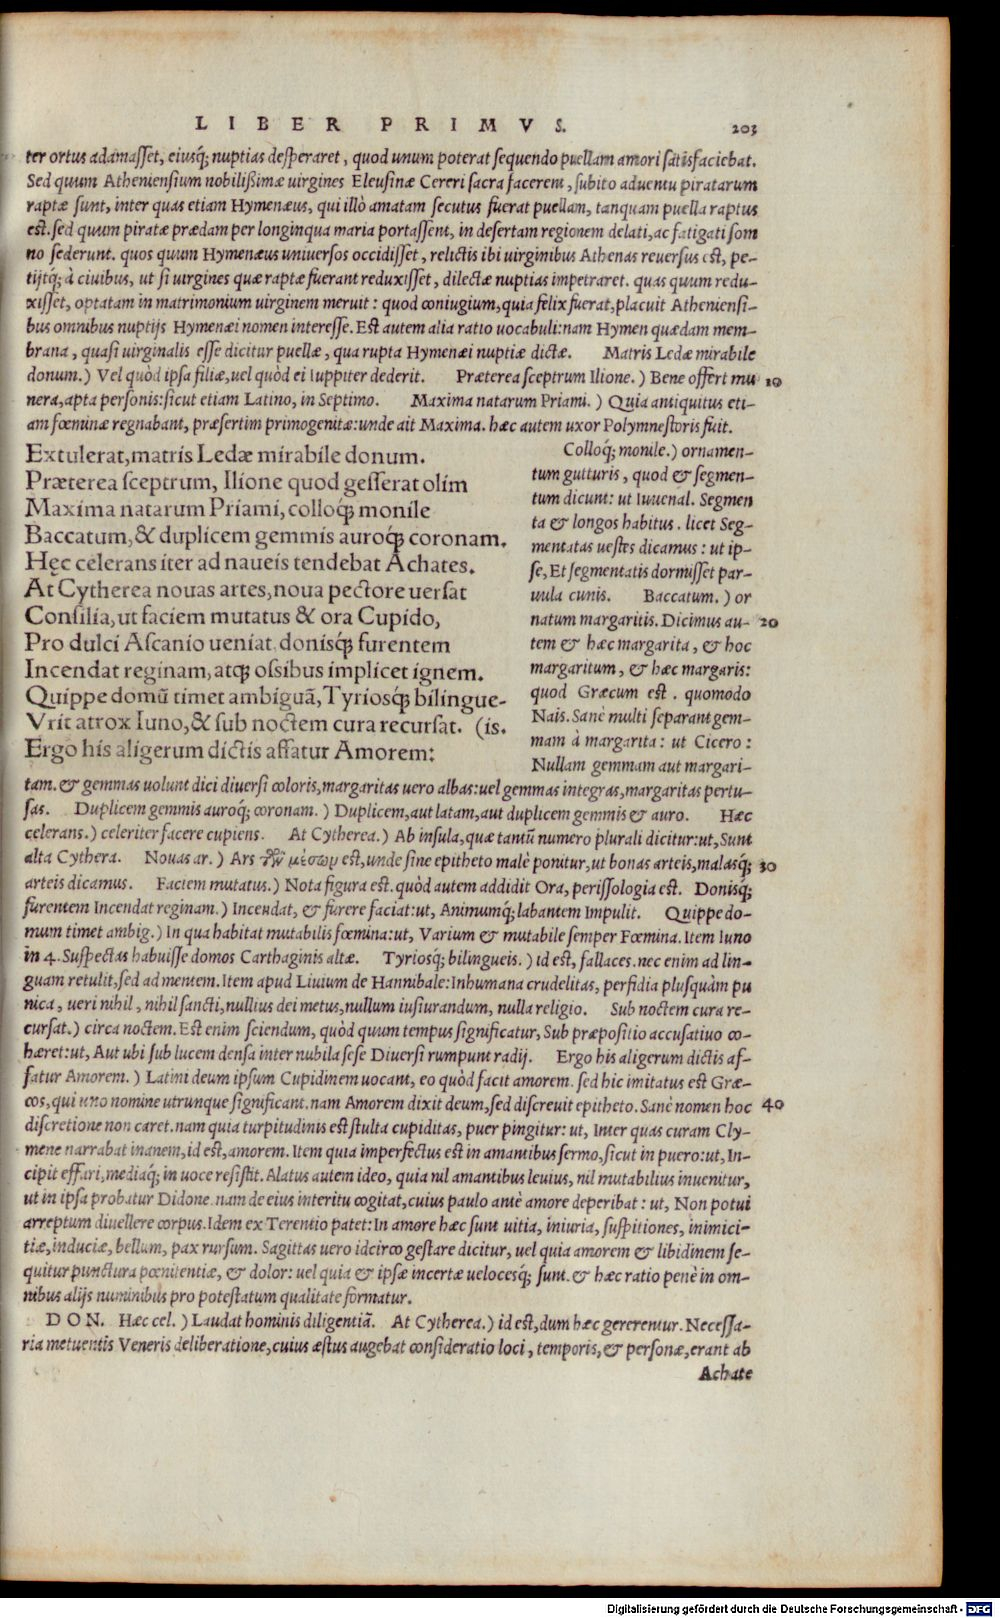 LIBER PRIMVS. 203
ter ortus adamasset, eiusq; nuptias desperaret, quod unum poterat sequendo puellam amori satisfaciebat.
Sed quum Atheniensium nobilißimæ uirgines Eleusinæ Cereri sacra facerent, subito aduentu piratarum
raptæ sunt, inter quas etiam Hymenæus, qui illò amatam secutus fuerat puellam, tanquam puella raptus
est. sed quum piratæ prædam per longinqua maria portassent, in desertam regionem delati, ac fatigati som
no sederunt. quos quum Hymenæus uniuersos occidisset, relictis ibi uirginibus Athenas reuersus est, pe-
tijtq; à ciuibus, ut si uirgines quæ raptæ fuerant reduxisset, dilectæ nuptias impetraret. quas quum redu-
xisset, optatam in matrimonium uirginem meruit: quod coniugium, quia felix fuerat, placuit Atheniensi-
bus omnibus nuptijs Hymenæi nomen interesse. Est autem alia ratio uocabuli: nam Hymen quædam mem-
brana, quasi uirginalis esse dicitur puellæ, qua rupta Hymenæi nuptiæ dictæ. Matris Ledæ mirabile
donum.) Vel quòd ipsa filiæ, uel quòd ei Iuppiter dederit. Præterea sceptrum Ilione.) Bene offert mu 10
nera, apta personis: sicut etiam Latino, in Septimo. Maxima natarum Priami.) Quia antiquitus eti-
am fœminæ regnabant, præsertim primogenitæ: unde ait Maxima. hæc autem uxor Polymnestoris fuit.
Extulerat, matris Ledæ mirabile donum.
Præterea sceptrum, Ilione quod gesserat olim
Maxima natarum Priami, colloq; monile
Baccatum, & duplicem gemmis auroq; coronam.
Hęc celerans iter ad naueis tendebat Achates.
At Cytherea nouas artes, noua pectore uersat
Consilia, ut faciem mutatus & ora Cupido,
Pro dulci Ascanio ueniat, donisq; furentem
Incendat reginam, atq; ossibus implicet ignem.
Quippe domū timet ambiguā, Tyriosq; bilingue-
Vrit atrox Iuno, & sub noctem cura recursat. (is.
Ergo his aligerum dictis affatur Amorem:
Colloq; monile.) ornamen-
tum gutturis, quod & segmen-
tum dicunt: ut Iuuenal. Segmen
ta & longos habitus. licet Seg-
mentatas uestes dicamus: ut ip-
se, Et segmentatis dormisset par-
uula cunis. Baccatum.) or
natum margaritis. Dicimus au- 20
tem & hæc margarita, & hoc
margaritum, & hæc margaris:
quod Græcum est. quomodo
Nais. Sanè multi separant gem-
mam à margarita: ut Cicero:
Nullam gemmam aut margari-
tam. & gemmas uolunt dici diuersi coloris, margaritas uero albas: uel gemmas integras, margaritas pertu-
sas. Duplicem gemmis auroq; coronam.) Duplicem, aut latam, aut duplicem gemmis & auro. Hæc
celerans.) celeriter facere cupiens. At Cytherea.) Ab insula, quæ tantū numero plurali dicitur: ut, Sunt
alta Cythera. Nouas ar.) Ars τῶν μέσων est, unde sine epitheto malè ponitur, ut bonas arteis, malasq; 30
arteis dicamus. Faciem mutatus.) Nota figura est. quòd autem addidit Ora, perissologia est. Donisq;
furentem Incendat reginam.) Incendat, & furere faciat: ut, Animumq; labantem Impulit. Quippe do-
mum timet ambig.) In qua habitat mutabilis fœmina: ut, Varium & mutabile semper Fœmina. Item Iuno
in 4. Suspectas habuisse domos Carthaginis altæ. Tyriosq; bilingueis.) id est, fallaces. nec enim ad lin-
guam retulit, sed ad mentem. Item apud Liuium de Hannibale: Inhumana crudelitas, perfidia plusquàm pu
nica, ueri nihil, nihil sancti, nullius dei metus, nullum iusiurandum, nulla religio. Sub noctem cura re-
cursat.) circa noctem. Est enim sciendum, quòd quum tempus significatur, Sub præpositio accusatiuo co-
hæret: ut, Aut ubi sub lucem densa inter nubila sese Diuersi rumpunt radij. Ergo his aligerum dictis af-
fatur Amorem.) Latini deum ipsum Cupidinem uocant, eo quòd facit amorem. sed hic imitatus est Græ-
cos, qui uno nomine utrunque significant. nam Amorem dixit deum, sed discreuit epitheto. Sanè nomen hoc 40
discretione non caret. nam quia turpitudinis est stulta cupiditas, puer pingitur: ut, Inter quas curam Cly-
mene narrabat inanem, id est, amorem. Item quia imperfectus est in amantibus sermo, sicut in puero: ut, In-
cipit effari, mediaq; in uoce resistit. Alatus autem ideo, quia nil amantibus leuius, nil mutabilius inuenitur,
ut in ipsa probatur Didone. nam de eius interitu cogitat, cuius paulo antè amore deperibat: ut, Non potui
arreptum diuellere corpus. Idem ex Terentio patet: In amore hæc sunt uitia, iniuria, suspitiones, inimici-
tiæ, induciæ, bellum, pax rursum. Sagittas uero idcirco gestare dicitur, uel quia amorem & libidinem se-
quitur punctura pœnitentiæ, & dolor: uel quia & ipsæ incertæ uelocesq; sunt. & hæc ratio penè in om-
nibus alijs numinibus pro potestatum qualitate formatur.
DON. Hæc cel.) Laudat hominis diligentiā. At Cytherea.) id est, dum hæc gererentur. Necessa-
ria metuentis Veneris deliberatione, cuius æstus augebat consideratio loci, temporis, & personæ, erant ab
Achate
Digitalisierung gefördert durch die Deutsche Forschungsgemeinschaft - DFG